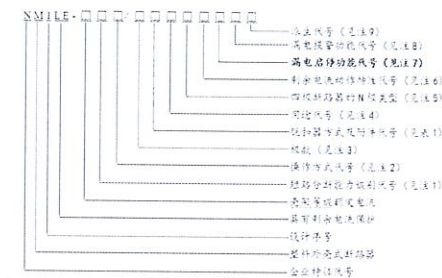 NM1LE-□□/□□□□□□□□
派生代号（见注9）
漏电报警功能代号（见注8）
漏电启停功能代号（见注7）
剩余电流动作特性代号（见注6）
四极断路器的N极类型（见注5）
用途代号（见注4）
脱扣器方式及附件代号（见表1）
极数（见注3）
操作方式代号（见注2）
短路分断能力级别代号（见注1）
壳架等级额定电流
具有剩余电流保护
设计序号
塑料外壳式断路器
企业特征代号